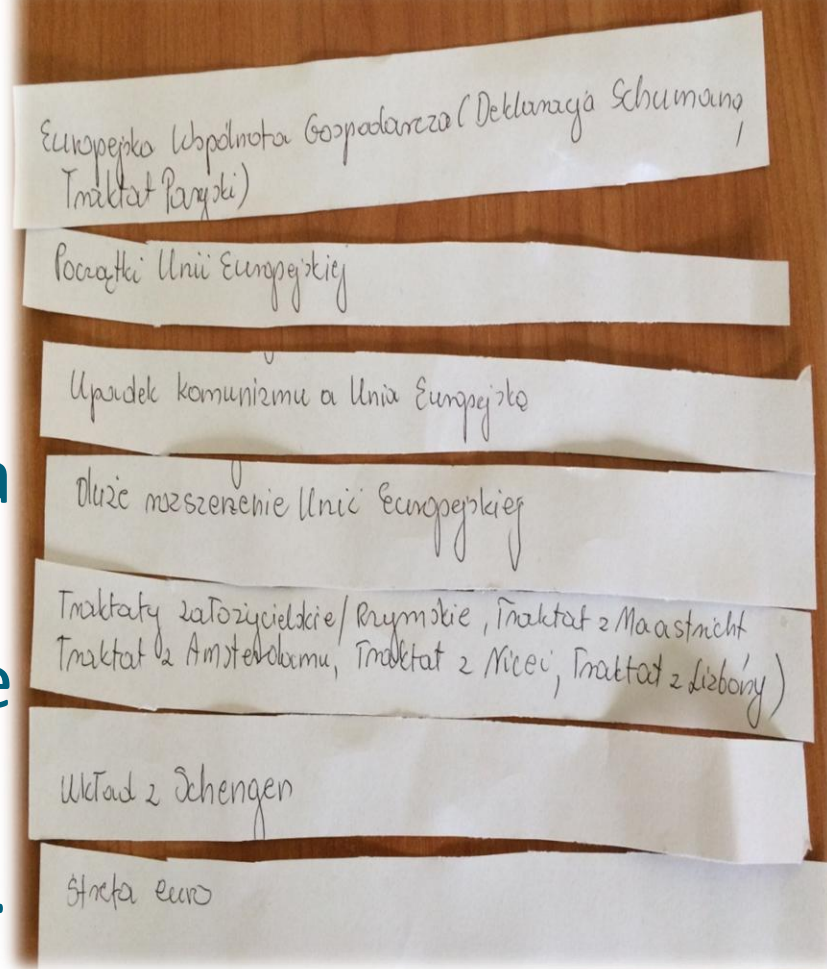 Europejska Wspólnota Gospodarcza (Deklaracja Schumana,
Traktat Paryski)
Początki Unii Europejskiej
Upadek komunizmu a Unia Europejska
Duże rozszerzenie Unii Europejskiej
Traktaty założycielskie/Rzymskie, Traktat z Maastricht
Traktat z Amsterdamu, Traktat z Nicei, Traktat z Lizbony)
Układ z Schengen
Strefa euro
a
e
.